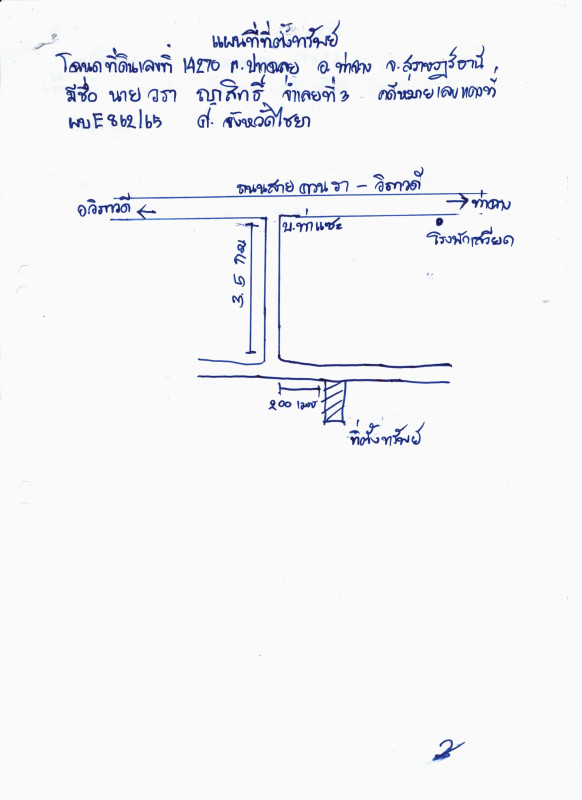 แผนที่ที่ตั้งทรัพย์
โฉนดที่ดินเลขที่ 14270 ต. อ. ท่าฉาง จ. สุราษฎร์ธานี
มีชื่อ นาย วรา จำเลยที่ 3 คดีหมายเลขแดงที่
ผบE 862/65 ศ. จังหวัดไชยา
ถนนสาย ควน รา - วิภาวดี
อ.วิภาวดี
ท่าฉาง
บ. ท่าแซะ
โรงพัก
3.5 กม
200 เมตร
ที่ตั้งทรัพย์
2